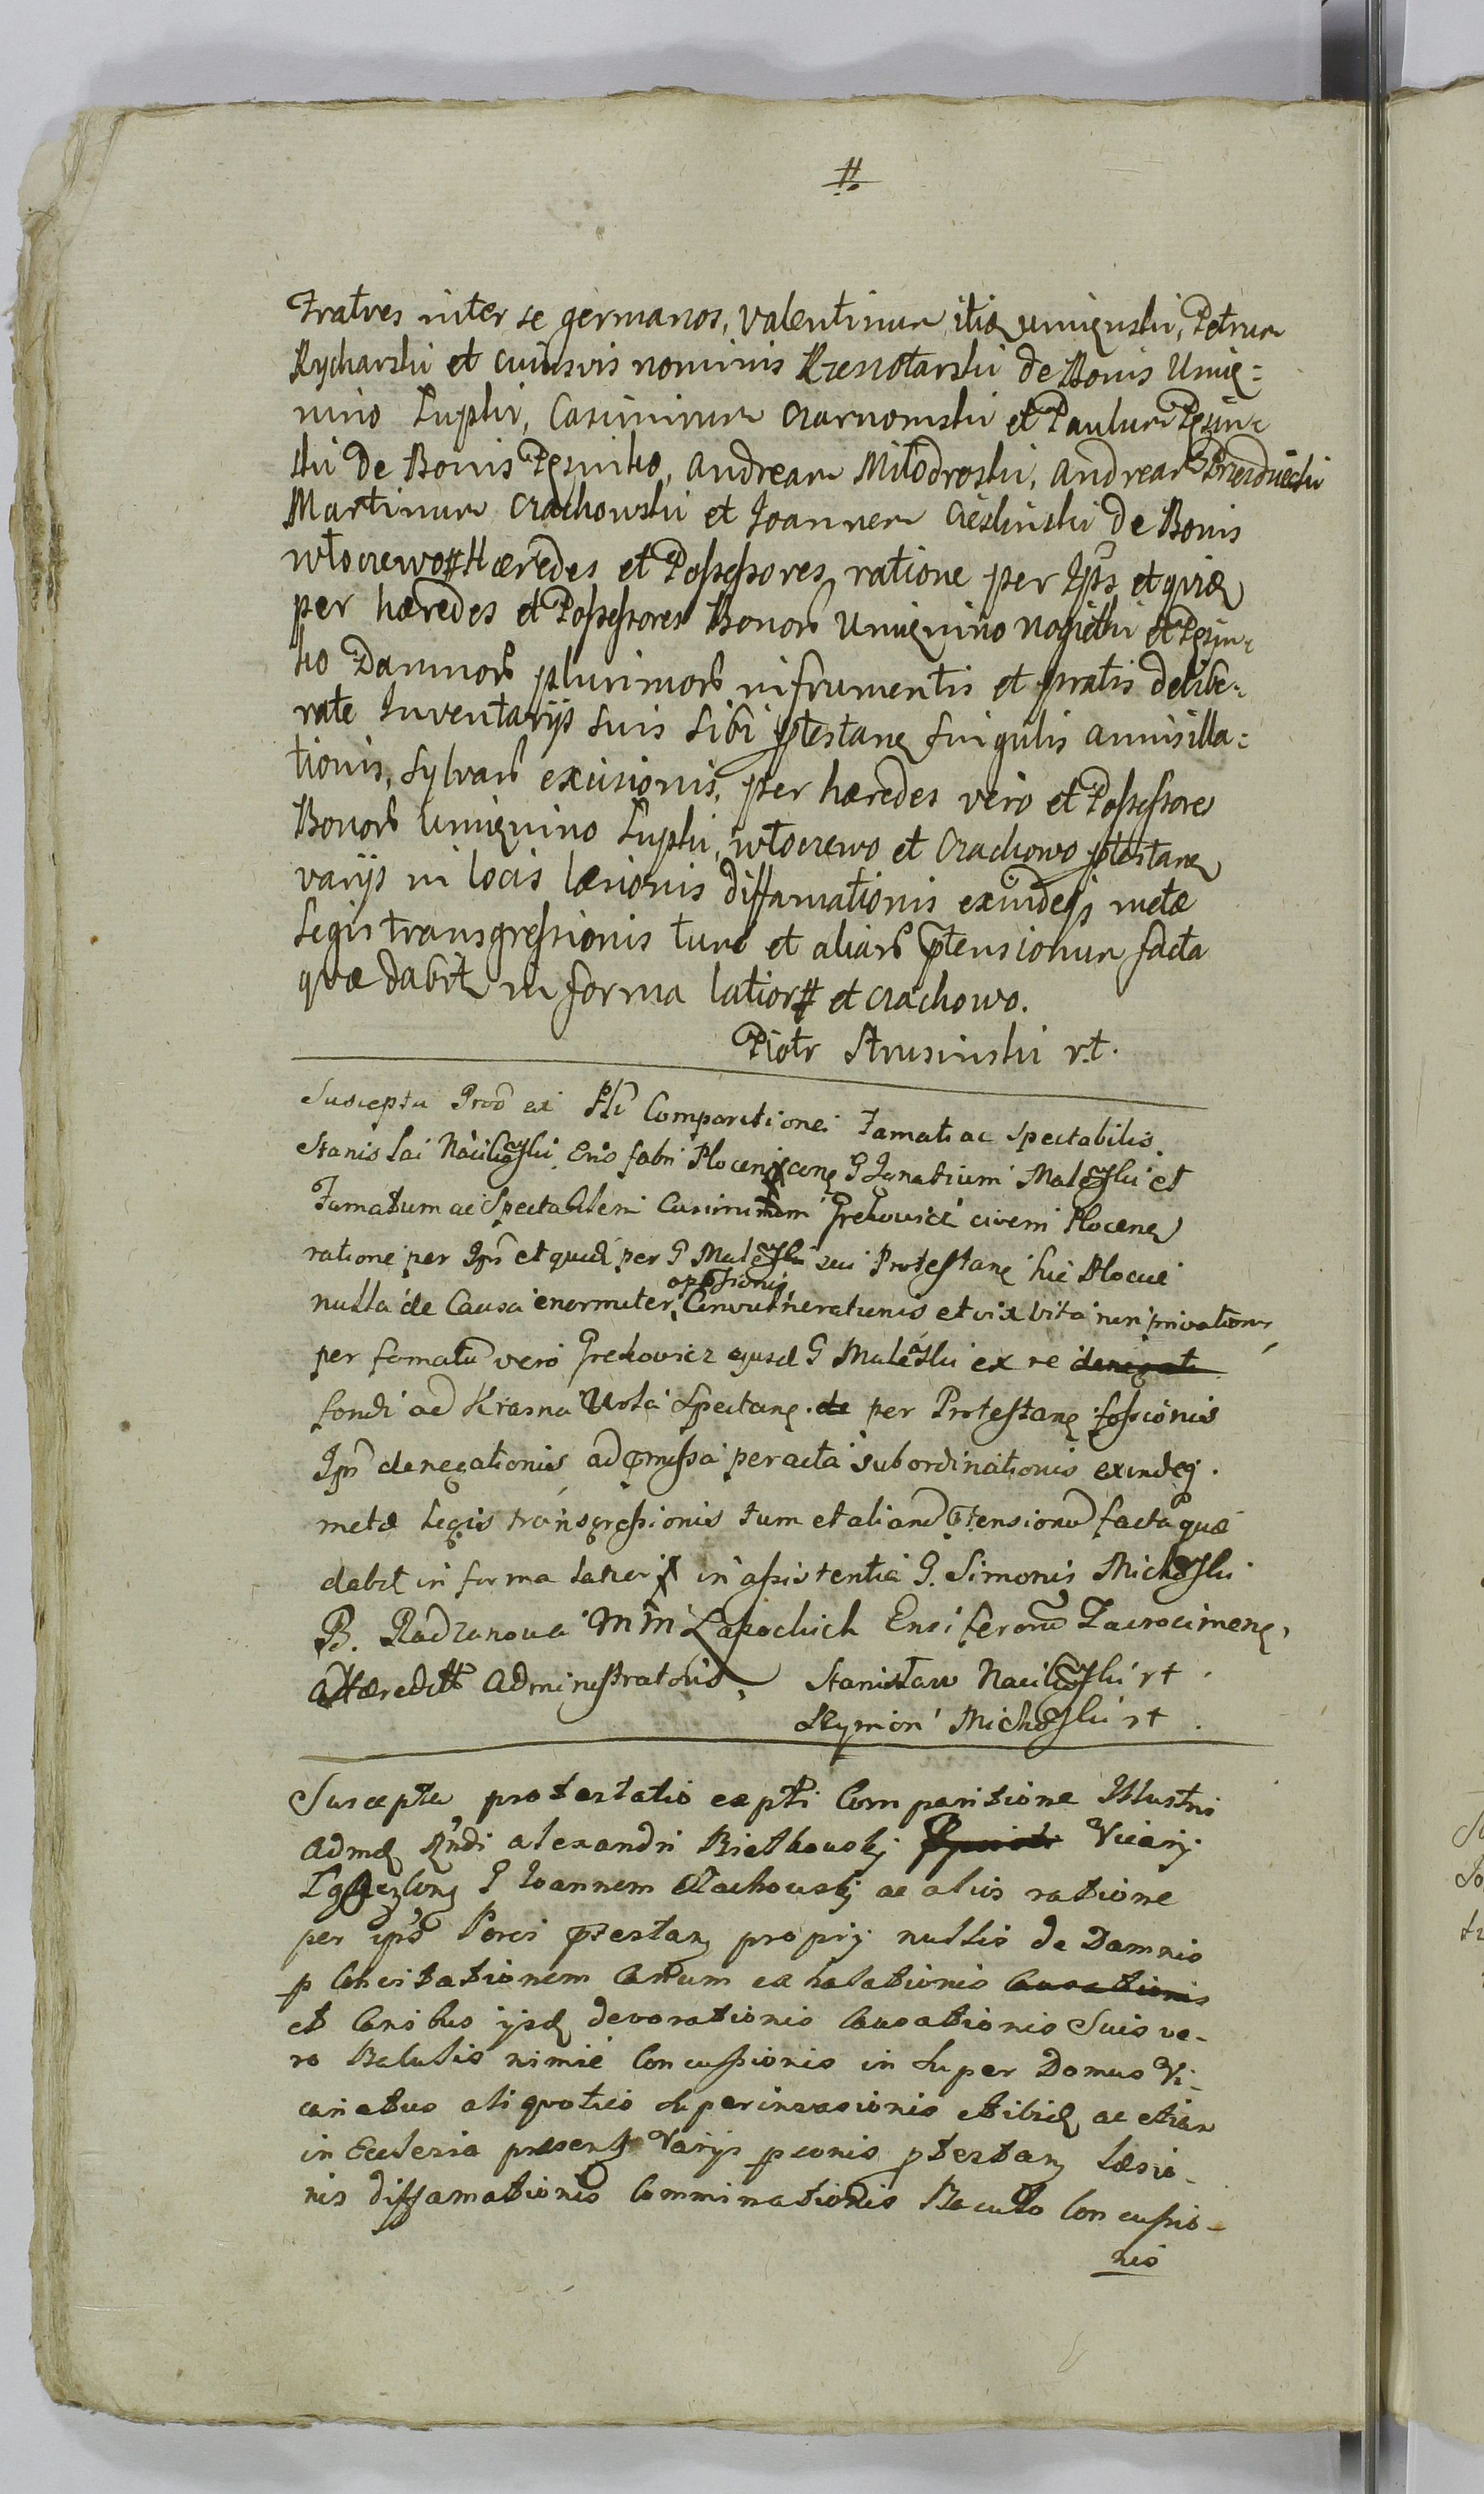 #
Fratres inter se germanos, Valentinum itiq Umięnski, Petrum
Rycharski et cuiusvis nominis Rzeszotarski de Bonis Umię=
nino Łupki, Casimirum Czarnomski et Paulum Pęszin=
ski de Bonis Pęszinko, Andream Miłodroski, Andream Brzozowiecki
Martinum Czachowski et Joannem Cieslinski de Bonis
Włoczewo # Hæredes et Possessores ratione per Ips et quidē
per hæredes et Possessores Bonorb Umięnino Nogietki et Pęszin=
ko Damnorb plurimorb in frumentis et pratis delibe=
rate Inventarijs suis sibi ptestanę singulis annis illa=
tionis, Sylvarb excisionis, per hæredes vero et Possessores
Bonorb Umięnino Łupki, Włoczewo et Czachowo ptestanę
varijs in locis læsionis diffamationis exindeq metæ
Legis transgressionis tum et aliarb ptensionum facta
quæ dabit in forma latiori # et Czachowo.
Piotr Strusinski r.t.
Suscepta Prod ex Pti Comparitionei Famati ac Spectabilis
Stanislai Nacilioski Ensifabri Plocen # conę G Ignatium Maleski et
Famatum ac Spectabilem Casimirum Grekowicz civem Plocenę
ratione per Ips et quid per G Maleski sui Protestanę hic Plocæ
oppssionis
nulla de Causa enormiter Convulneratunis et vix vita non privationis
per famatū vero Grekowicz ejusd G Maleski ex re denegat
fondi ad Krasna Wola Spectanę. de per Protestanę fossionis
Ips denegationis ad pmissa peracta subordinationis exindeq.
metæ Legis transgressionis tum et aliarū ptensionū facta quæ
dabit in forma latiori # in assistentia G. Simonis Michoski
B. Radzanova Mm Łazockich Ensiferorū Zacrocimenę.
Hæredtt Administratoris, Stanisław Naciliski rt.
Szymon Michoski rt.
Suscepta protestatio ex pti Comparitione Illustris
admd Rndi Alexandri Bielkowskj Vicarij
Con G Joannem Czachowskj ac alios ratione
per ips Porci ptestanę proprij nullis de Damnis
p Concitationem Canum exhalationis Causationis
et Canibus ijsdę devorationis Causationis Suis ve-
ro Baculis nimie Concussionis in super Domus Vi-
cariatus aliquoties Superinvasionis et ibidę ac etiam
in Ecclesia præsentę varijs psonis ptestanę læsio-
nis diffamationis Comminationis Baculo Concussio-
nis